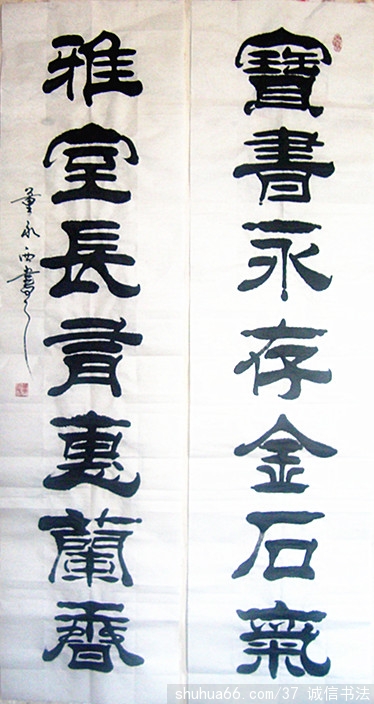 寶書永存金石氣
雅室長有惠蘭香
董永西書
shuhua66.com/37 诚信书法